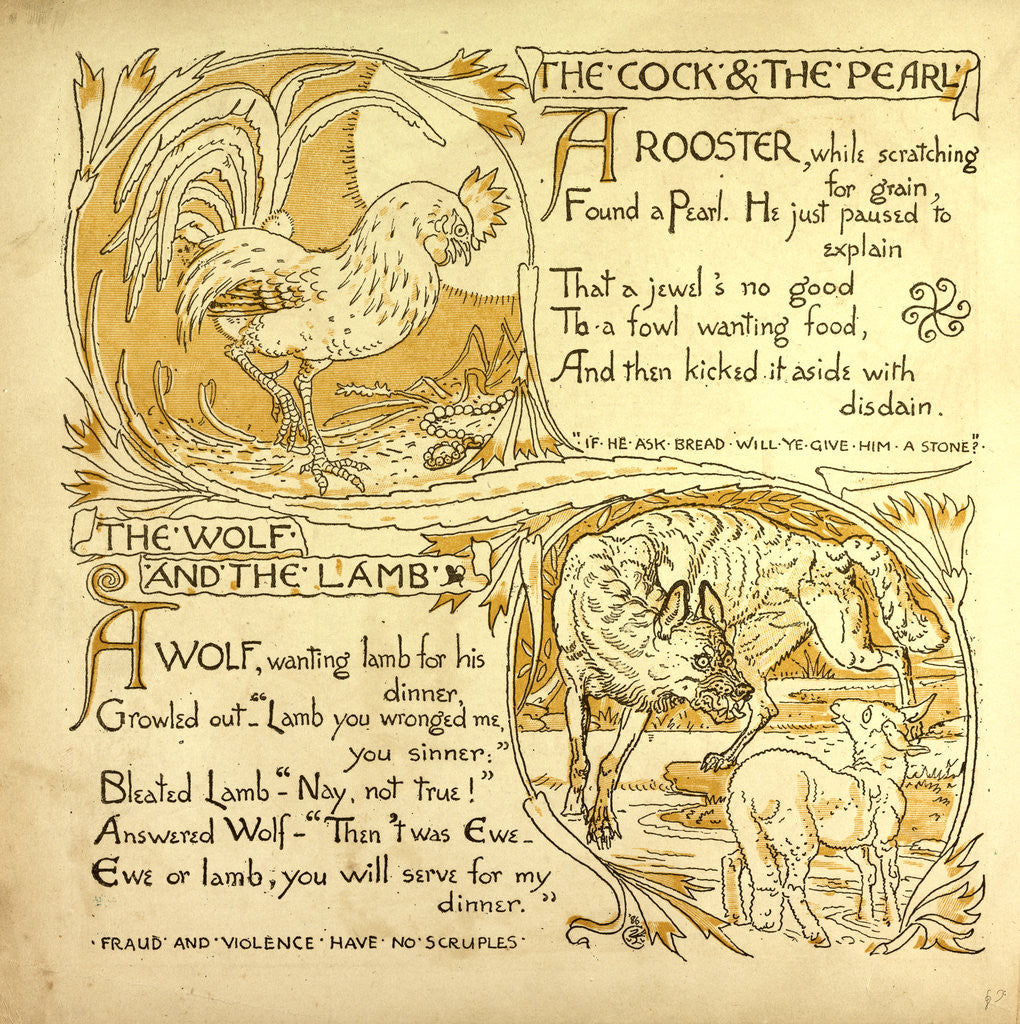 THE·COCK·&·THE·PEARL·
A ROOSTER, while scratching
for grain,
Found a Pearl. He just paused to
explain
That a jewel's no good
To·a fowl wanting food,
And then kicked it aside with
disdain.
"IF·HE·ASK·BREAD·WILL·YE·GIVE·HIM·A STONE?"·
THE·WOLF·
·AND·THE·LAMB·
A WOLF, wanting lamb for his
dinner,
Growled out–"Lamb you wronged me,
you sinner:"
Bleated Lamb–"Nay, not true!"
Answered Wolf–"Then 't was Ewe–
Ewe or lamb, you will serve for my
dinner."
·FRAUD·AND·VIOLENCE·HAVE·NO·SCRUPLES·
'86